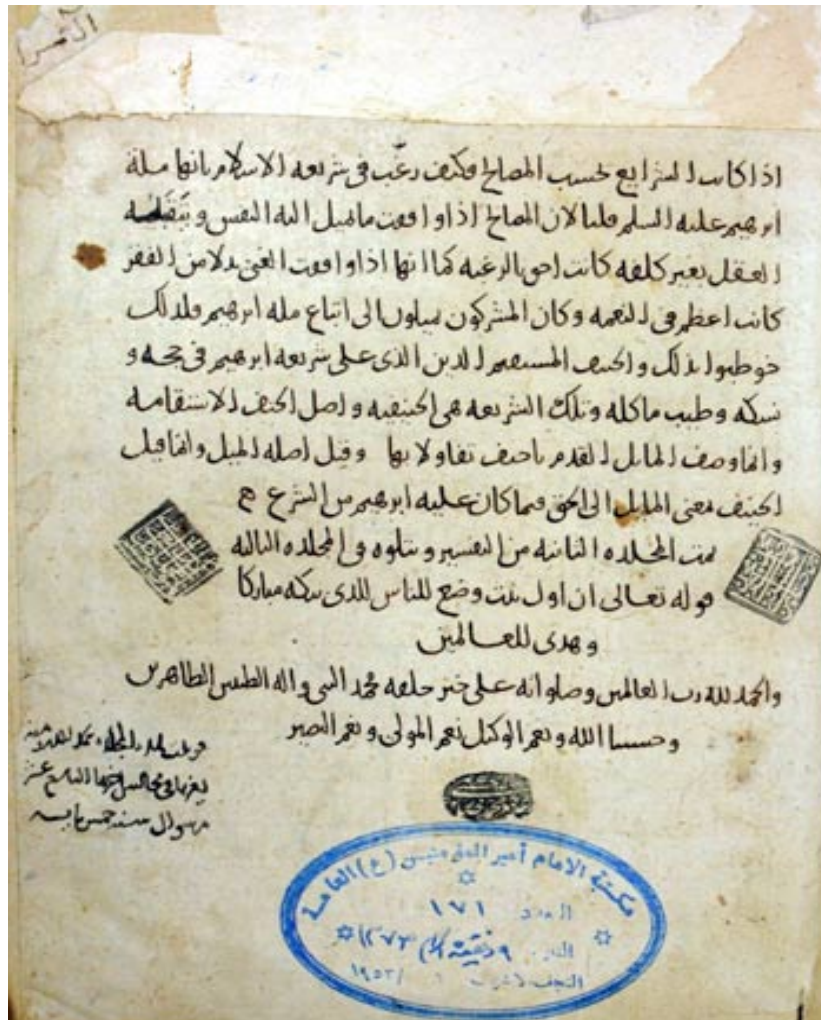 اذا كانت الشرايع بحسب المصالح فكيف رغّب فى شريعه الاسلام بانها ملة
ابرهيم عليه السلم قلنا لان المصالح اذا وافقت ما تميل اليه النفس ويتقبله
العقل بغير كلفه كانت احق بالرغبه كما انها اذا وافقت الغنى بدلا من الفقر
كانت اعظم فى النعمه وكان المشركون يميلون الى اتباع مله ابرهيم فلذلك
خوطبوا بذلك والحنيف المستقيم الدين الذى على شريعه ابرهيم فى حجه و
نسكه وطيب ماكله وتلك الشريعه هى الحنيفيه واصل الحنف الاستقامه
وانما وصف المايل القدم باحنف تفاولا بها وقيل اصله الميل وانما قيل
الحنيف بمعنى المايل الى الحق فيما كان عليه ابرهيم من الشرع
تمت المجلده الثانيه من التفسير ويتلوه فى المجلده الثالثه
قوله تعالى ان اول بيت وضع للناس للذى ببكه مباركا
وهدى للعالمين
والحمد لله رب العالمين وصلواته على خير خلقه محمد النبى واله الطيبين الطاهرين
وحسبنا الله ونعم الوكيل نعم المولى ونعم النصير
مكتبة الامام أمير المؤمنين (ع) العامة
العدد ١٧١
النجف الاشرف